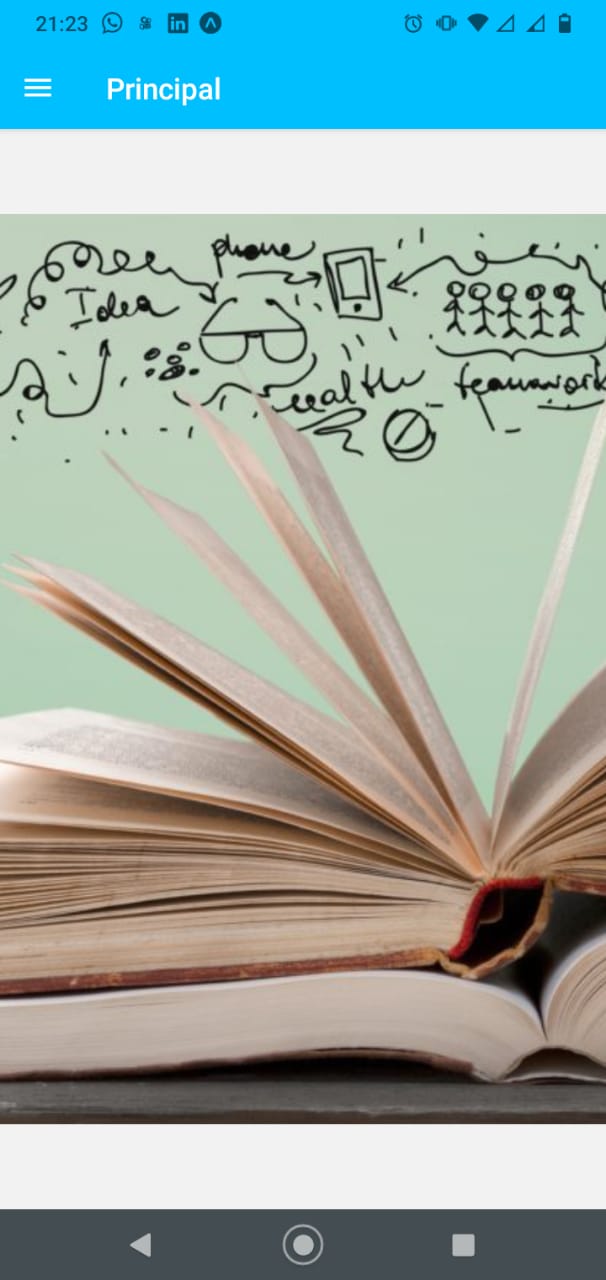 21:23
Principal
phone
Idea
health
teamwork